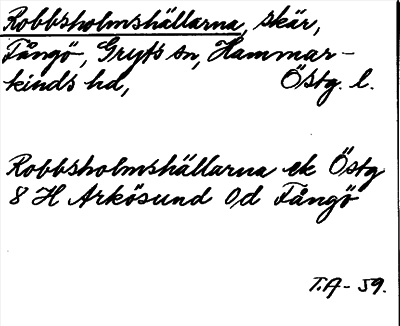 Robbsholmshällarna, skär,
Fångö, Gryts sn, Hammar-
kinds hd, Östg. l.
Robbsholmshällarna ek Östg
8 H Arkösund 0d Fångö
T.A - 59.